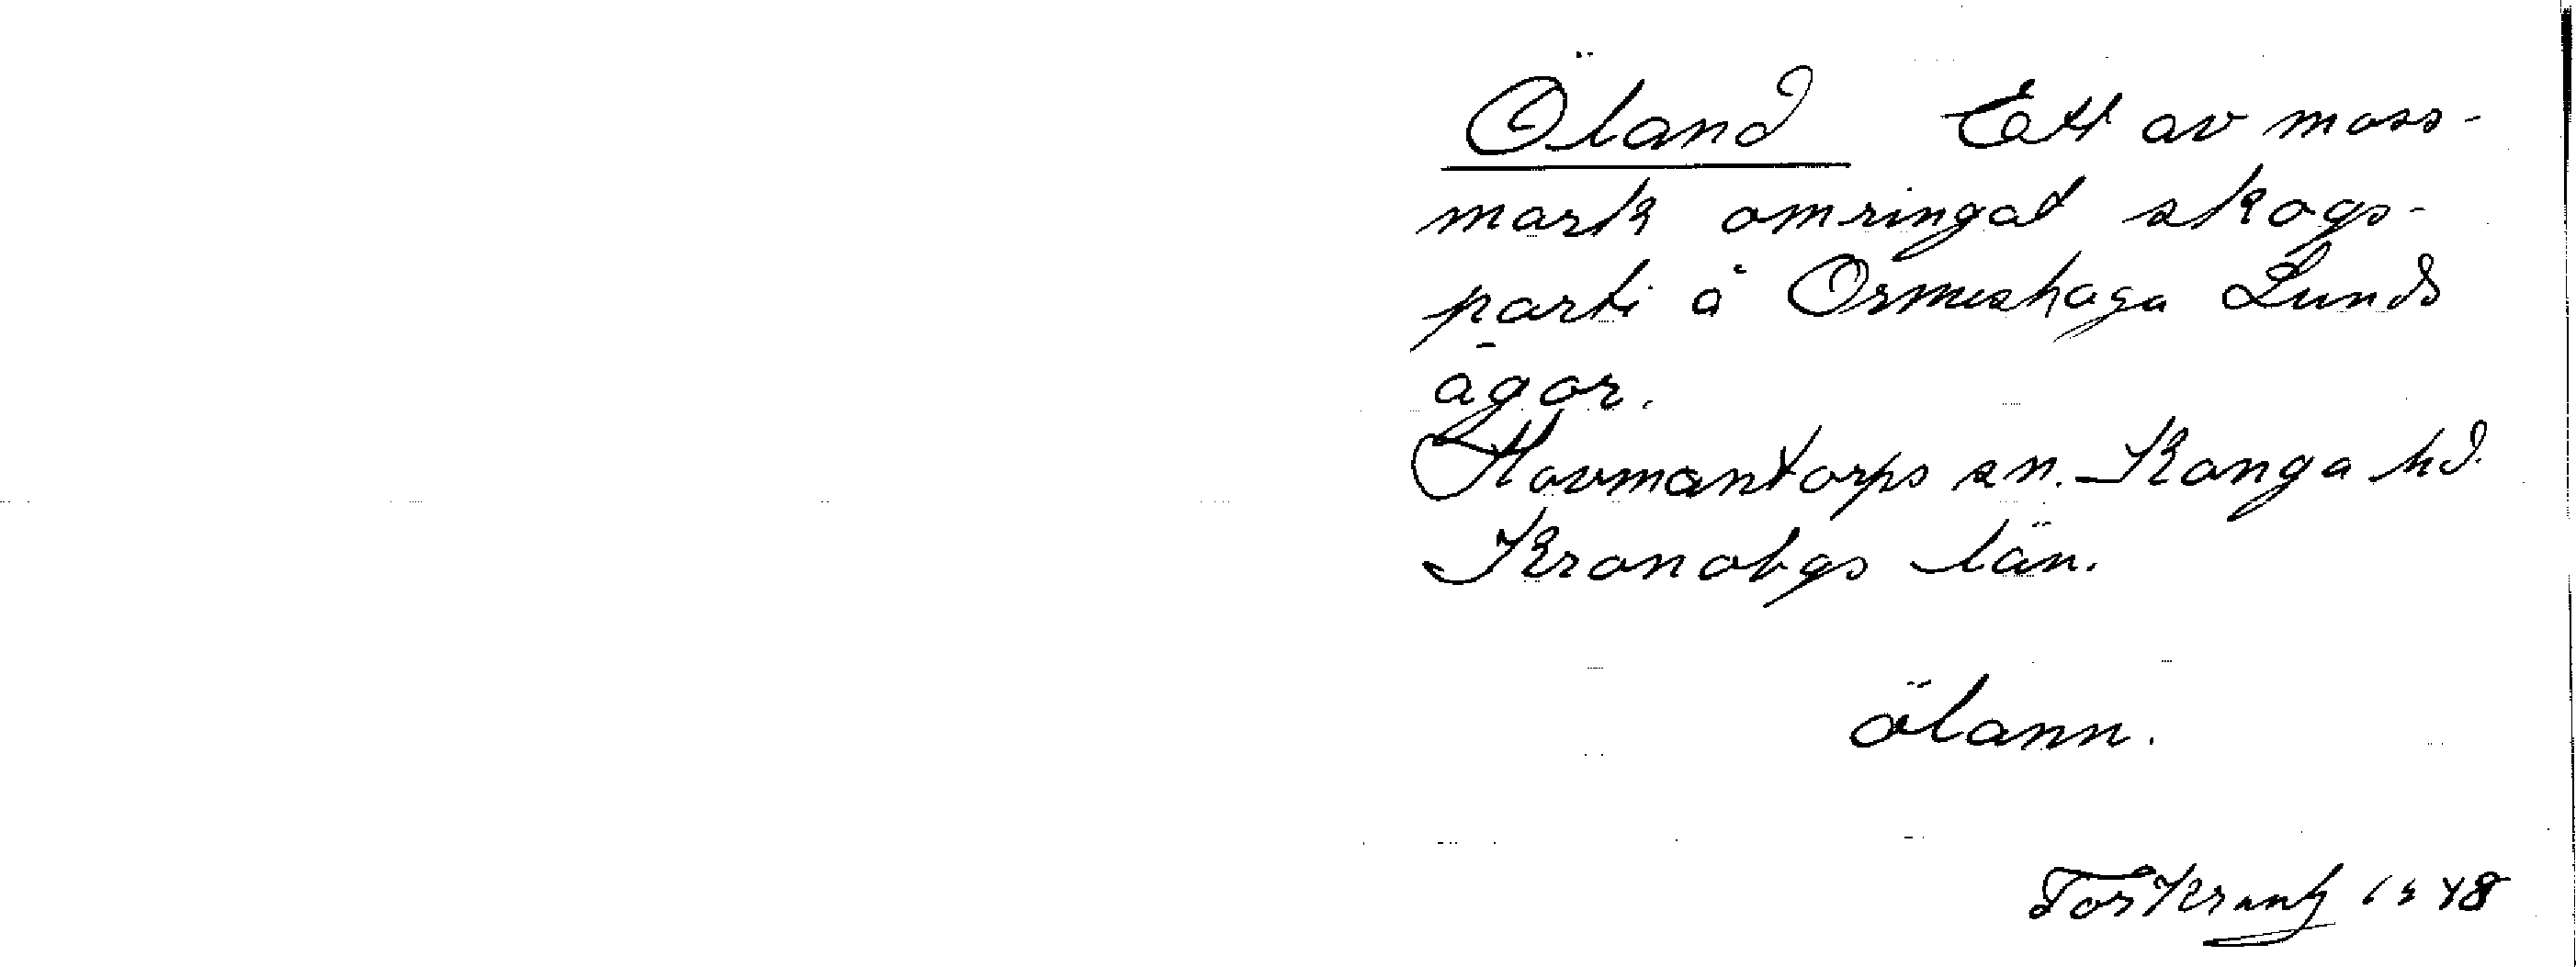 Öland Ett av moss-
mark omringat skogs-
parti å Ormeshaga Lunds
ägor.
Hovmantorps sn. Konga hd.
Kronobgs län.
ölann.
Tor Krantz 1948